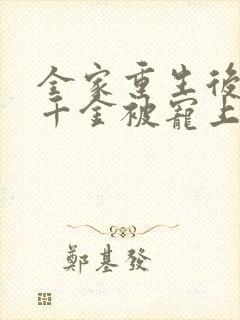 全家重生後
千金被寵上
鄭基發